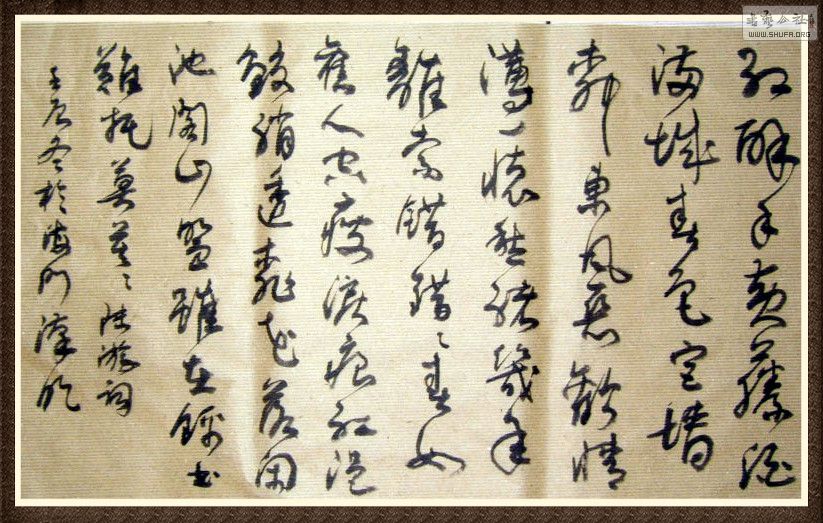 紅酥手黃藤酒
滿城春色宮墻
柳東風惡歡情
薄一懷愁緒幾年
離索錯錯〻春如
舊人空瘦淚痕紅浥
鮫綃透桃花落閑
池閣山盟雖在錦書
難托莫莫〻陸游詞
壬辰冬於海門
书艺公社
WWW.SHUFA.ORG